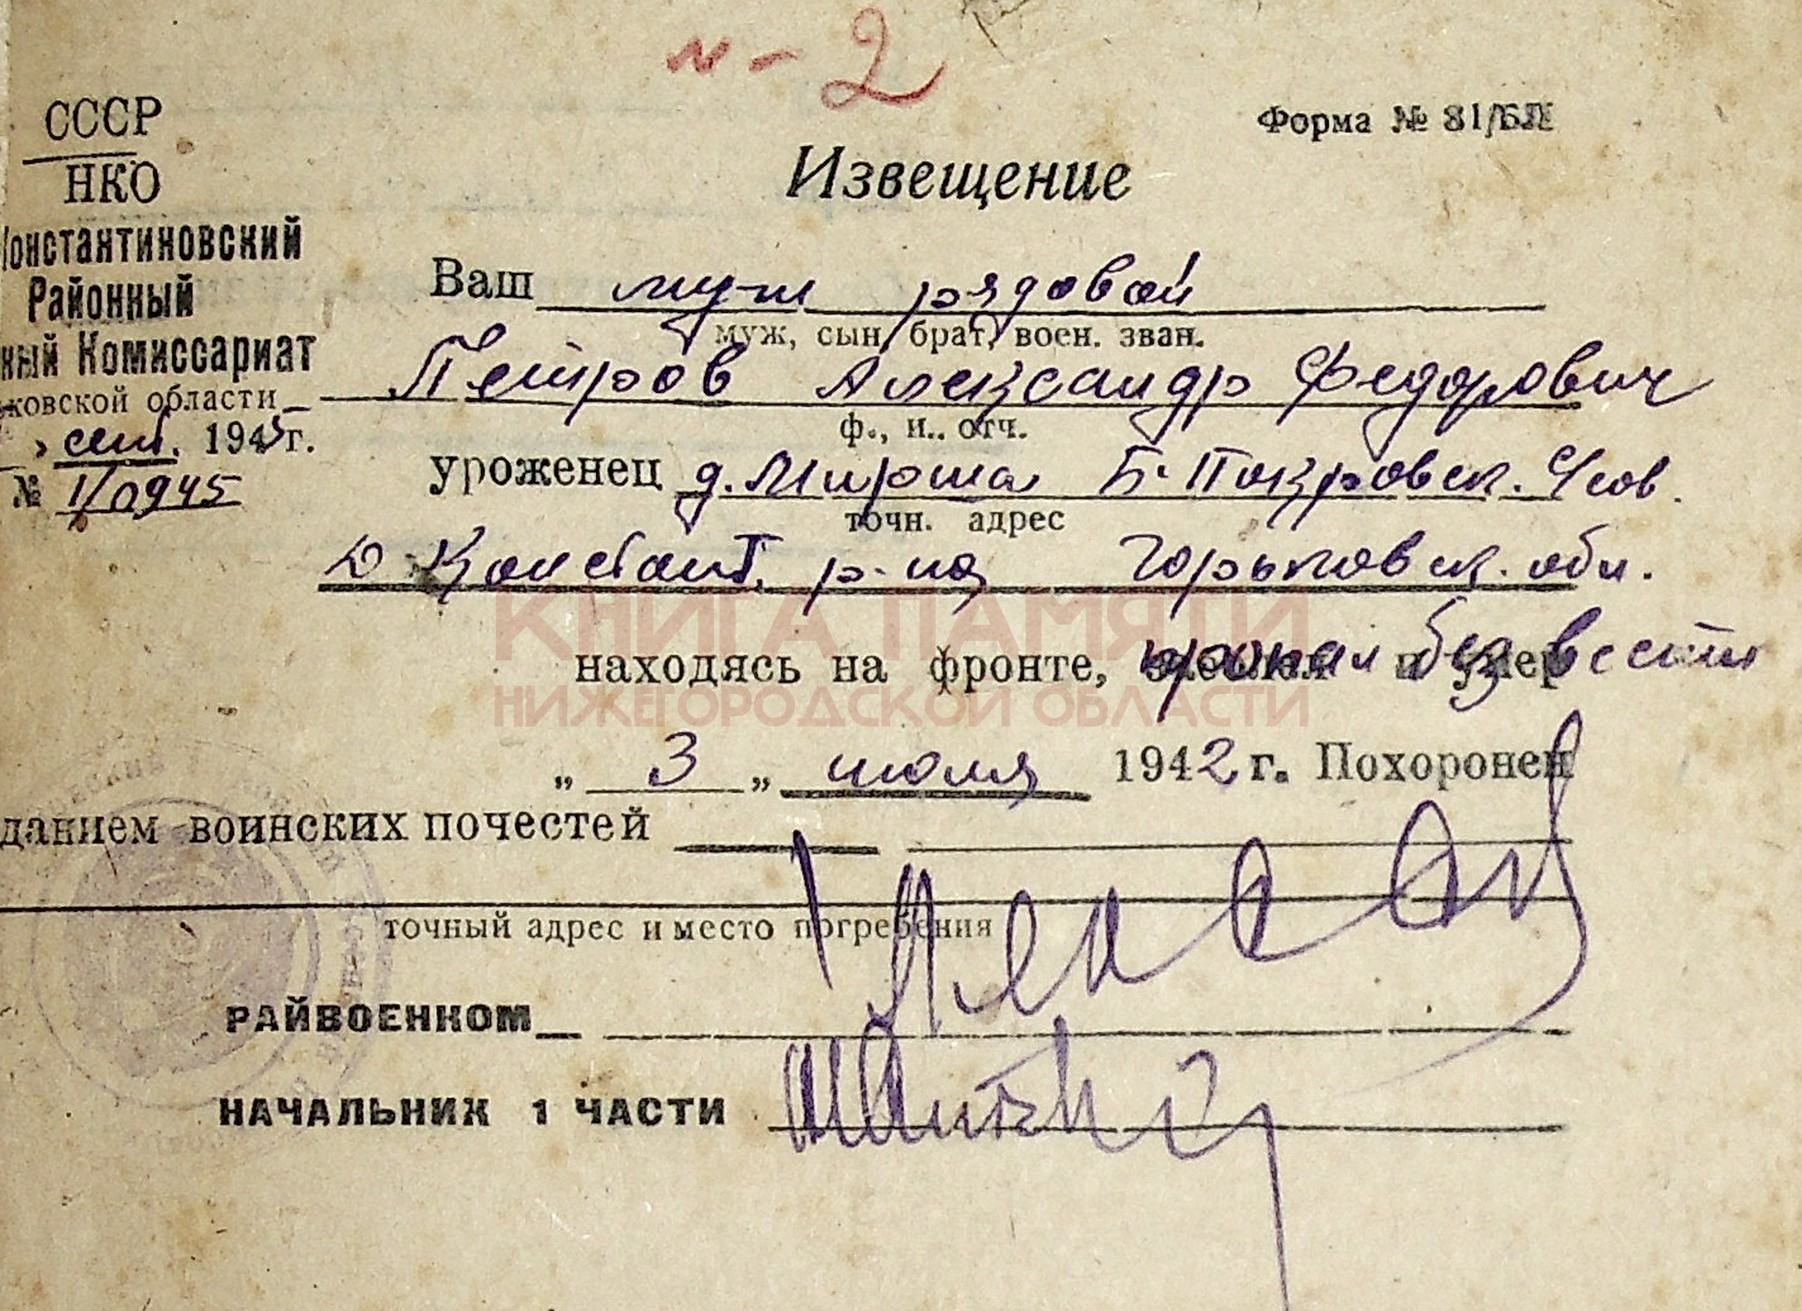 н-2
СССР
НКО
Константиновский
Районный
ный Комиссариат
ковской области
" сент. 1945 г.
№ 1/0945
Форма № 81/БЛ
Извещение
Ваш муж рядовой
муж, сын, брат, воен. зван.
Петров Александр Федорович
ф., и., отч.
уроженец д. Мирша Б-Покровск. с/сов.
точн. адрес
Д-Констант. р-на Горьковск. обл.
КНИГА ПАМЯТИ
НИЖЕГОРОДСКОЙ ОБЛАСТИ
находясь на фронте, пропал без вести
„ 3 „ июля 1942 г. Похоронен
данием воинских почестей
точный адрес и место погребения
РАЙВОЕНКОМ
НАЧАЛЬНИК 1 ЧАСТИ